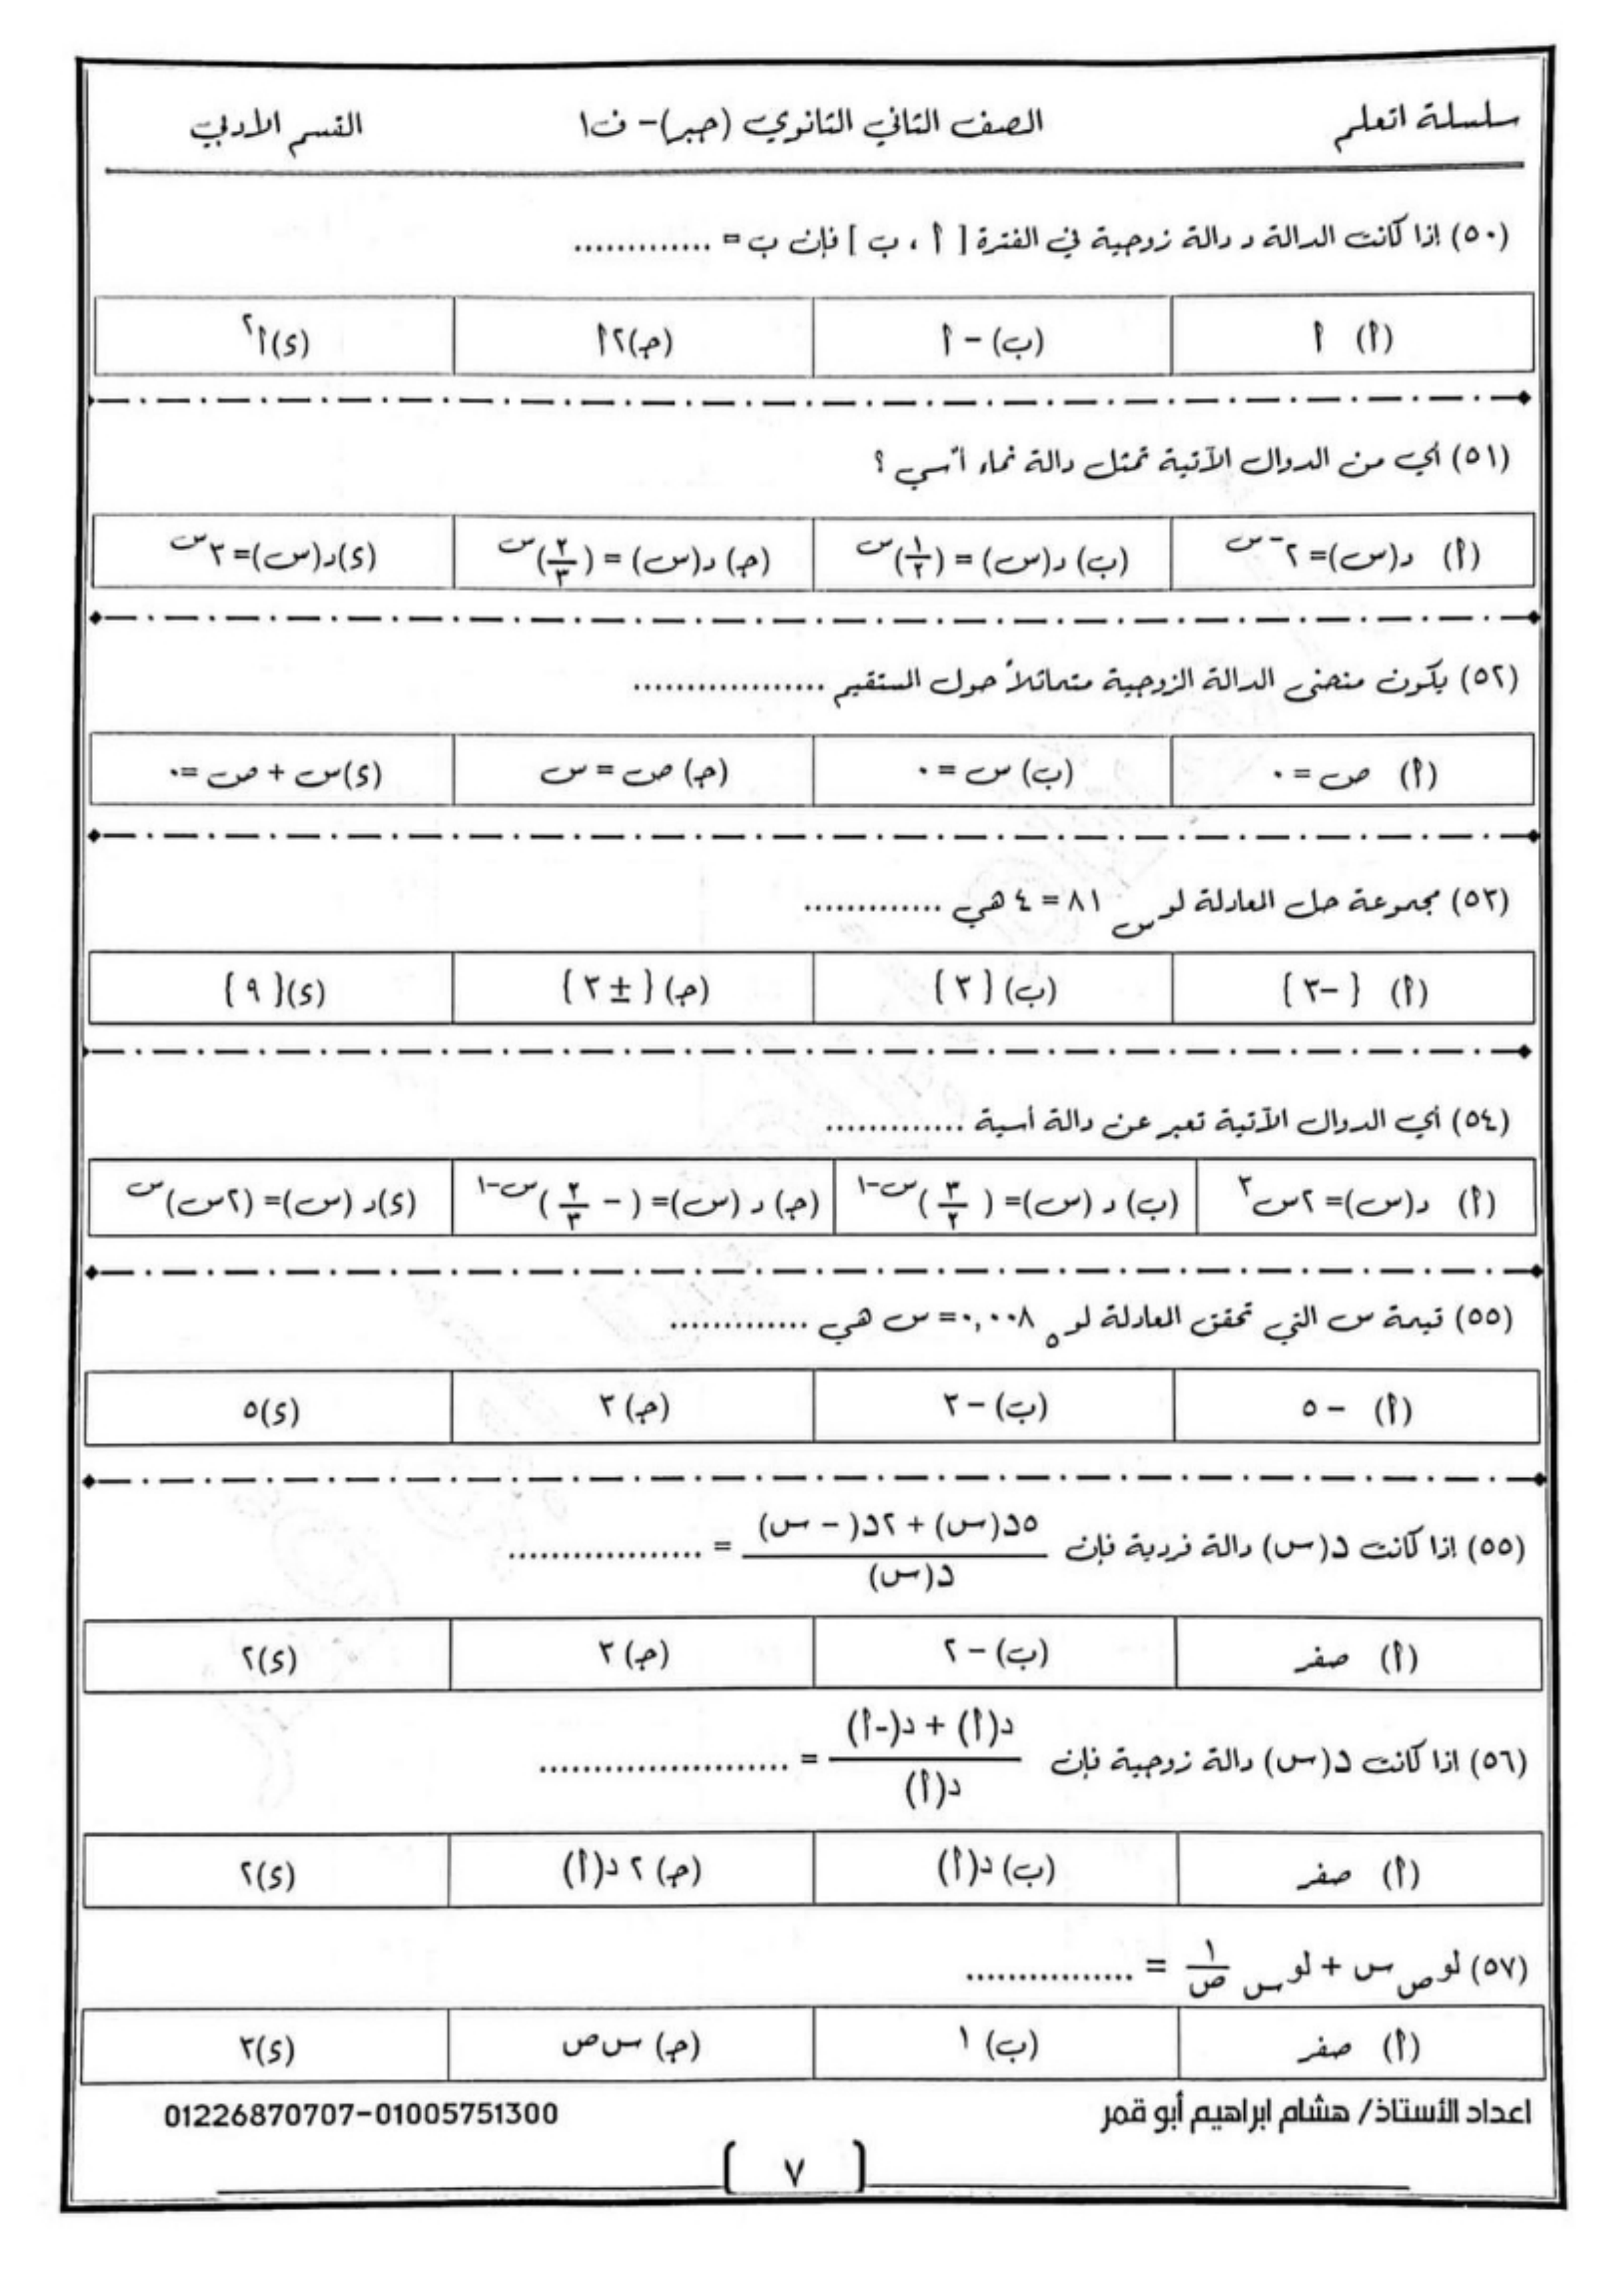 سلسلة اتعلم
الصف الثاني الثانوي (جبر)- ف١
القسم الأدبي
(٥٠) إذا كانت الدالة د دالة زوجية في الفترة [ أ ، ب ] فإن ب = .............
(أ) أ
(ب) - أ
(جـ) ٢أ
(ء) أ٢
(٥١) أي من الدوال الآتية تمثل دالة نماء أسي ؟
(أ) د(س)= ٢-س
(ب) د(س) = (١/٢)س
(جـ) د(س) = (٢/٣)س
(ء) د(س)= ٣س
(٥٢) يكون منحنى الدالة الزوجية متماثلاً حول المستقيم ..................
(أ) ص = ٠
(ب) س = ٠
(جـ) ص = س
(ء) س + ص =٠
(٥٣) مجموعة حل المعادلة لوس ٨١ = ٤ هي .............
(أ) { -٣ }
(ب) { ٣ }
(جـ) { ± ٣ }
(ء) { ٩ }
(٥٤) أي الدوال الآتية تعبر عن دالة أسية .............
(أ) د(س)= ٢س٣
(ب) د (س)= ( ٣/٢ )س-١
(جـ) د (س)= ( - ٢/٣ )س-١
(ء) د (س)= (٢س)س
(٥٥) قيمة س التي تحقق المعادلة لو٥ ٠,٠٠٨= س هي .............
(أ) - ٥
(ب) - ٣
(جـ) ٣
(ء) ٥
(٥٥) إذا كانت د(س) دالة فردية فإن ٥د(س) + ٢د( - س) / د(س) = ..................
(أ) صفر
(ب) - ٢
(جـ) ٣
(ء) ٢
(٥٦) اذا كانت د(س) دالة زوجية فإن د(أ) + د(-أ) / د(أ) = .......................
(أ) صفر
(ب) د(أ)
(جـ) ٢ د(أ)
(ء) ٢
(٥٧) لوص س + لوس ١/ص = ................
(أ) صفر
(ب) ١
(جـ) س ص
(ء) ٣
اعداد الأستاذ/ هشام ابراهيم أبو قمر
01226870707-01005751300
[ ٧ ]